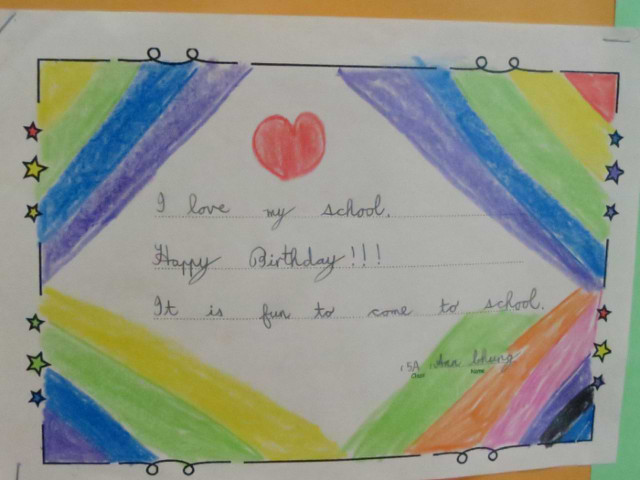 I love my school.
Happy Birthday!!!
It is fun to come to school.
5A Ann Chung
Class Name